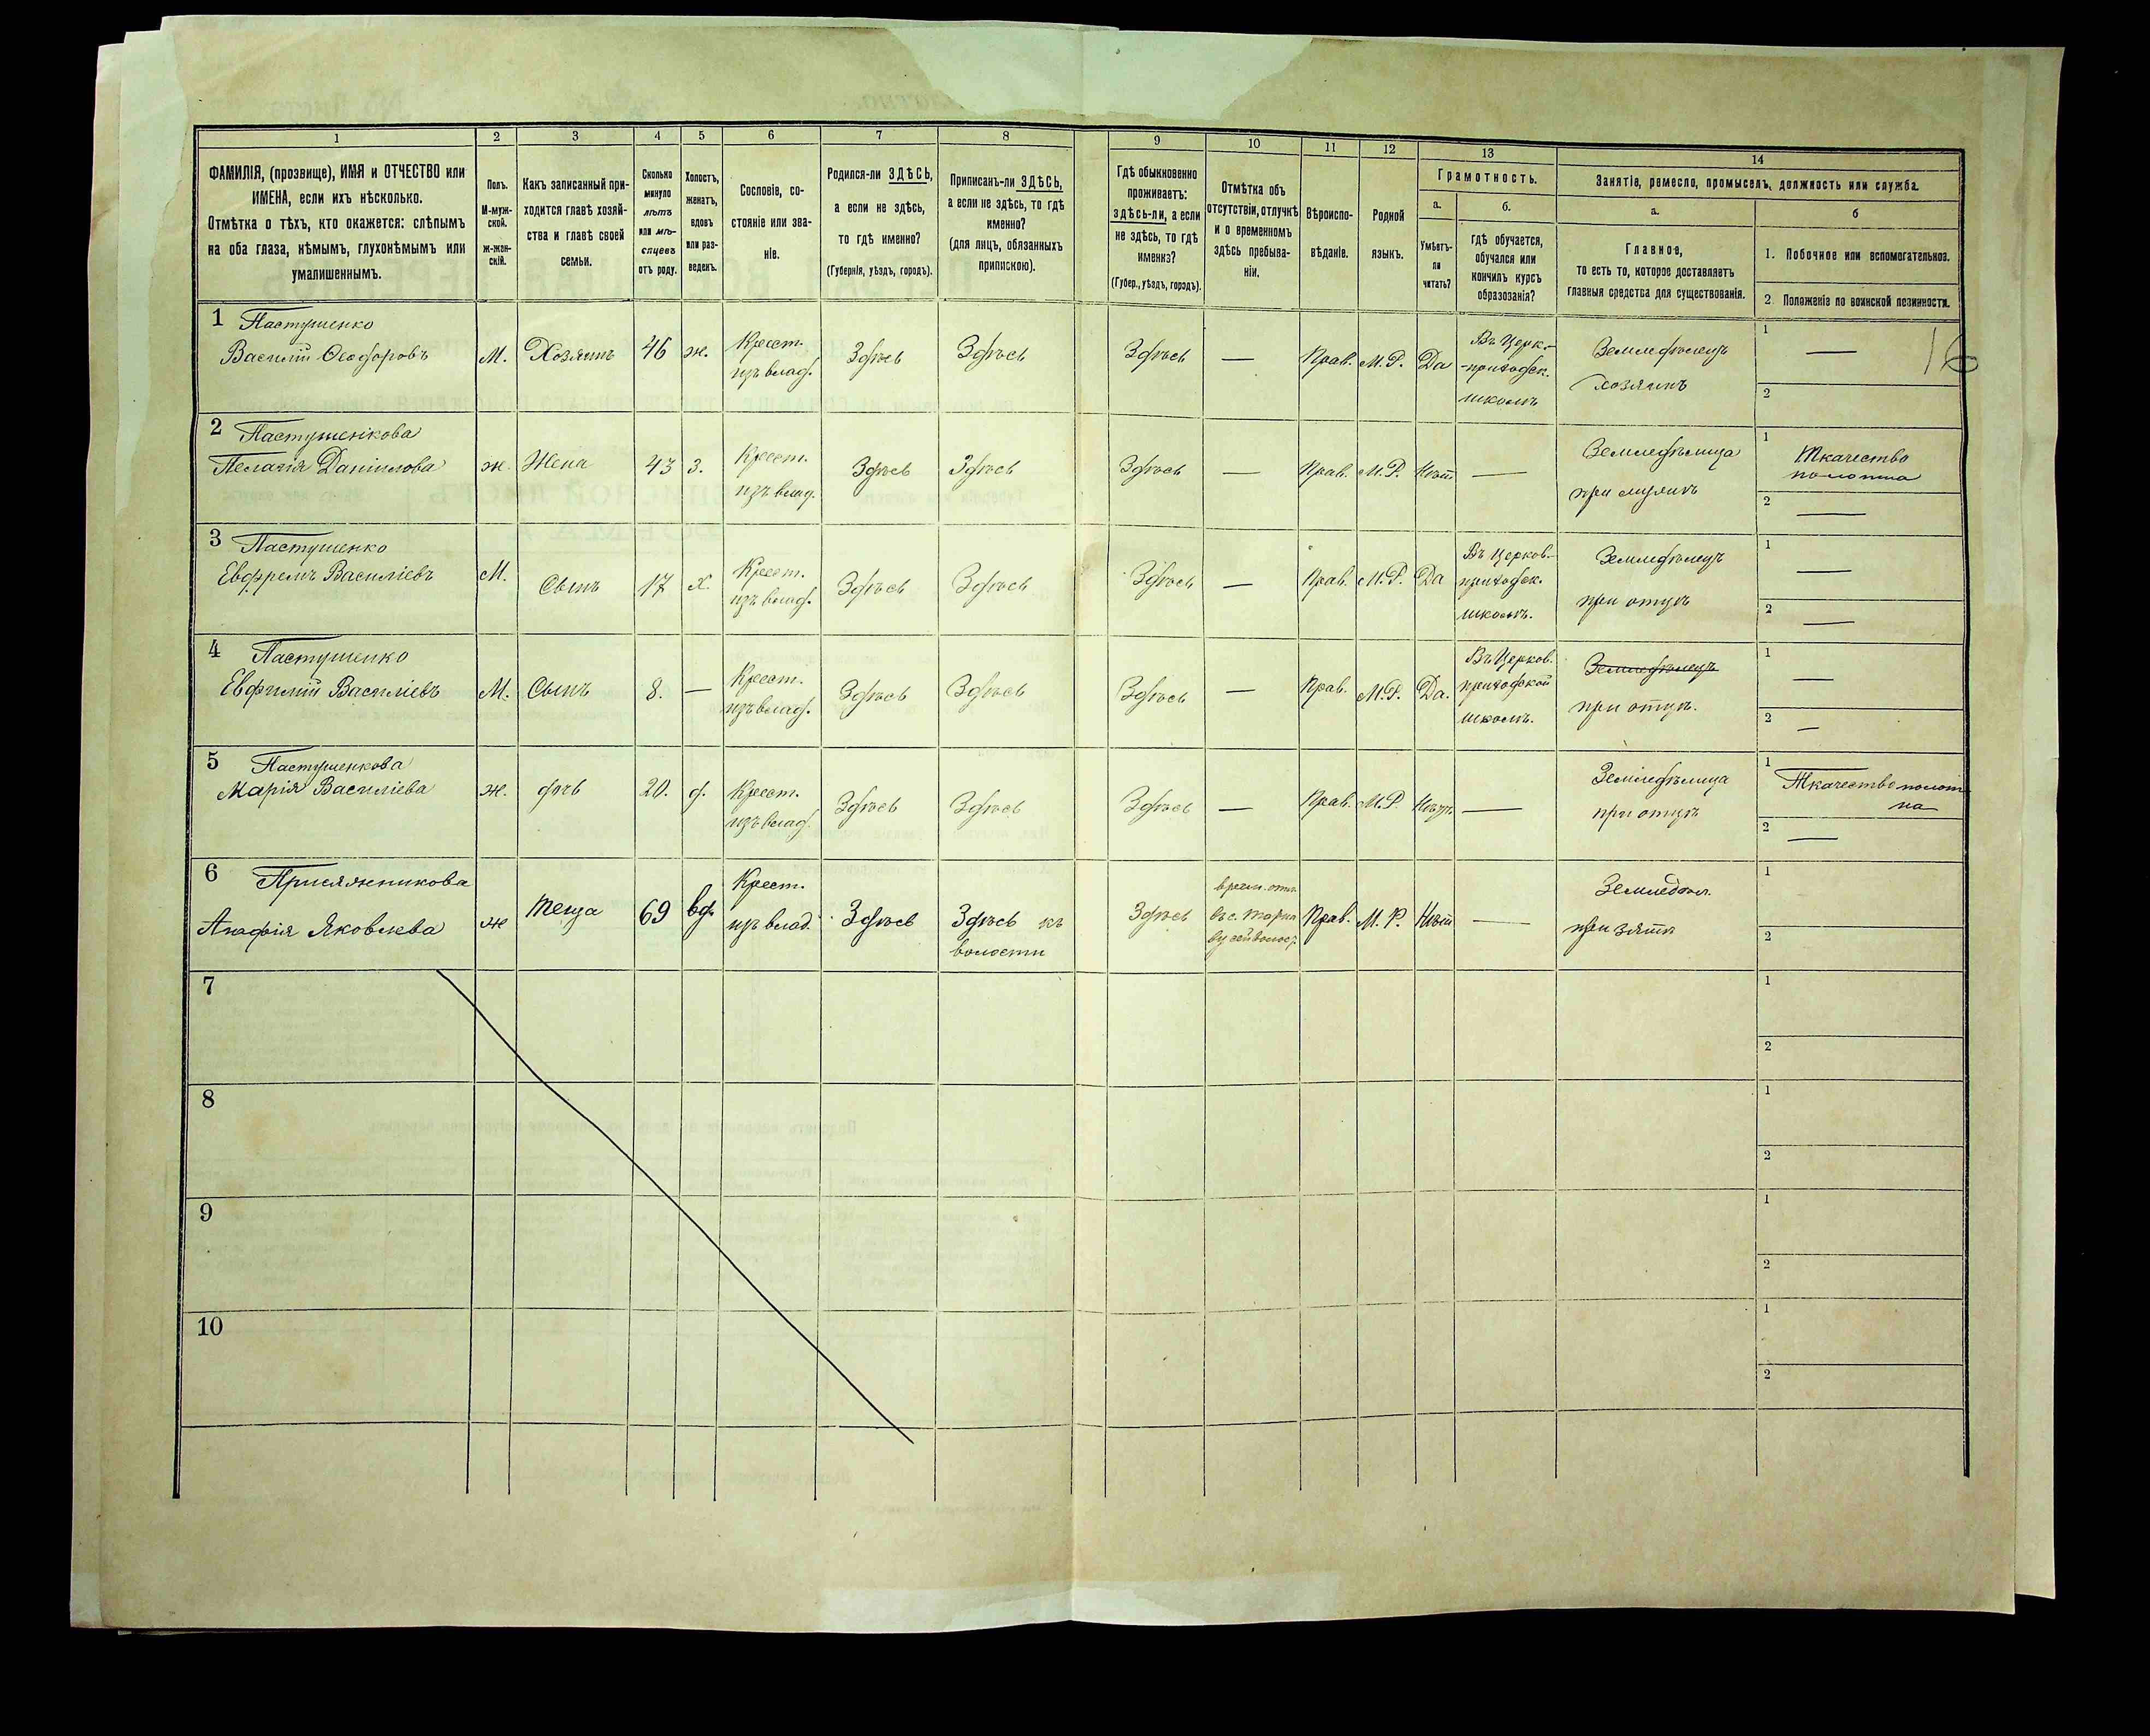 1 2 3 4 5 6 7 8 9 10 11 12 13 14
ФАМИЛІЯ, (прозвище), ИМЯ и ОТЧЕСТВО или
ИМЕНА, если ихъ нѣсколько.
Отмѣтка о тѣхъ, кто окажется: слѣпымъ
на оба глаза, нѣмымъ, глухонѣмымъ или
умалишеннымъ.
Полъ.
М-муж-
ской.
ж-жен-
скій.
Какъ записанный при-
ходится главѣ хозяй-
ства и главѣ своей
семьи.
Сколько
минуло
лѣтъ
или мѣ-
сяцевъ
отъ роду.
Холостъ,
женатъ,
вдовъ
или раз-
веденъ.
Сословіе, со-
стояніе или зва-
ніе.
Родился-ли ЗДѢСЬ,
а если не здѣсь,
то гдѣ именно?
(Губернія, уѣздъ, городъ).
Приписанъ-ли ЗДѢСЬ,
а если не здѣсь, то гдѣ
именно?
(для лицъ, обязанныхъ
припискою).
Гдѣ обыкновенно
проживаетъ:
здѣсь-ли, а если
не здѣсь, то гдѣ
именно?
(Губер., уѣздъ, городъ).
Отмѣтка объ
отсутствіи, отлучкѣ
и о временномъ
здѣсь пребыва-
ніи.
Вѣроиспо-
вѣданіе.
Родной
языкъ.
Грамотность.
а.
Умѣетъ-
ли
читать?
б.
гдѣ обучается,
обучался или
кончилъ курсъ
образованія?
Занятіе, ремесло, промыселъ, должность или служба.
а.
Главное,
то есть то, которое доставляетъ
главныя средства для существованія.
б
1. Побочное или вспомогательное.
2. Положеніе по воинской повинности.
16
1 Пастушенко
Василій Ѳеодоровъ
М.
Хозяинъ
46
ж.
Крест.
изъ влад.
Здѣсь
Здѣсь
Здѣсь
—
Прав.
М.Р.
Да
Въ Церк.-
-приходск.
школѣ
Земледѣлецъ
хозяинъ
1 —
2
2 Пастушенкова
Пелагія Даніилова
ж.
Жена
43
З.
Крест.
изъ влад.
Здѣсь
Здѣсь
Здѣсь
—
Прав.
М.Р.
Нѣтъ
—
Земледѣлица
при мужѣ
1 Ткачество
полотна
2 —
3 Пастушенко
Евфремъ Василіевъ
М.
Сынъ
17
х.
Крест.
изъ влад.
Здѣсь
Здѣсь
Здѣсь
—
Прав.
М.Р.
Да
Въ Церков.-
приходск.
школѣ.
Земледѣлецъ
при отцѣ
1 —
2 —
4 Пастушенко
Василіевъ
М.
Сынъ
8.
—
Крест.
изъ влад.
Здѣсь
Здѣсь
Здѣсь
—
Прав.
М.Р.
Да.
Въ Церков.
приходской
школѣ.
Земледѣлецъ
при отцѣ.
1 —
2 —
5 Пастушенкова
Марія Василіева
ж.
дочь
20.
д.
Крест.
изъ влад.
Здѣсь
Здѣсь
Здѣсь
—
Прав.
М.Р.
—
Земледѣлица
при отцѣ
1 Ткачество полот
на
2 —
6 Присяжникова
Яковлева
ж
Теща
69
вд.
Крест.
изъ влад.
Здѣсь
Здѣсь къ
волости
Здѣсь
Прав.
М.Р.
Нѣтъ
—
при зятѣ
1
2
7
1
2
8
1
2
9
1
2
10
1
2